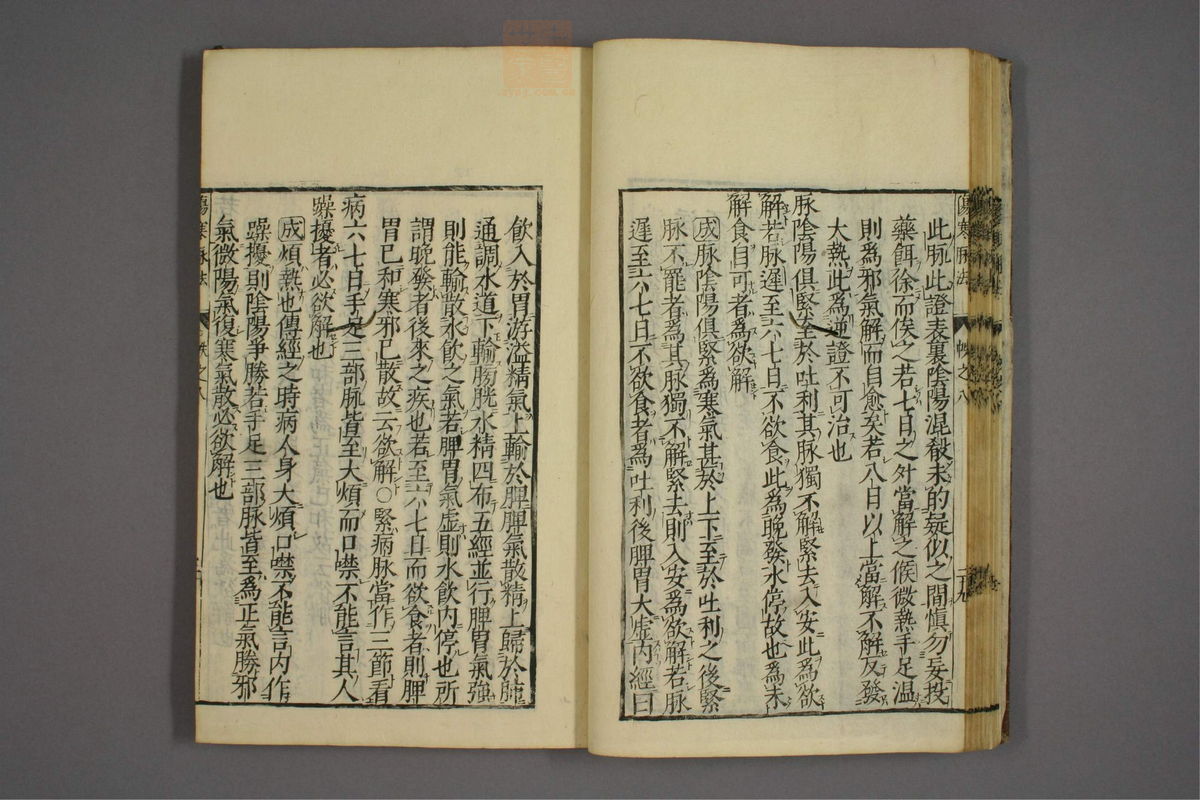 此脉此證表裏陰陽混殽未的疑似之間慎勿妄投
藥餌徐而俟之若七日之外當解之候微熱手足温
則爲邪氣解而自愈矣若八日以上當解不解反發
大熱此爲逆證不可治也
脉陰陽俱緊至於吐利其脉獨不解緊去入安此爲欲
解若脉遲至六七日不欲食此爲晚發水停故也爲未
解食自可者爲欲解
成脉陰陽俱緊爲寒氣甚於上下至於吐利之後緊
脉不罷者爲其脉獨不解緊去則入安爲欲解若脉
遲至六七日不欲食者爲吐利後脾胃大虚内經曰
傷寒脉法
帙之八
二十九
飲入於胃游溢精氣上輸於脾脾氣散精上歸於肺
通調水道下輸膀胱水精四布五經並行脾胃氣強
則能輸散水飲之氣若脾胃氣虚則水飲内停也所
謂晚發者後來之疾也若至六七日而欲食者則脾
胃已和寒邪已散故云欲解○緊病脉當作三節看
病六七日手足三部脉皆至大煩而口噤不能言其人
躁擾者必欲解也
成煩熱也傳經之時病人身大煩口噤不能言内作
躁擾則陰陽爭勝若手足三部脉皆至爲正氣勝邪
氣微陽氣復寒氣散必欲解也
傷寒脉法
帙之八